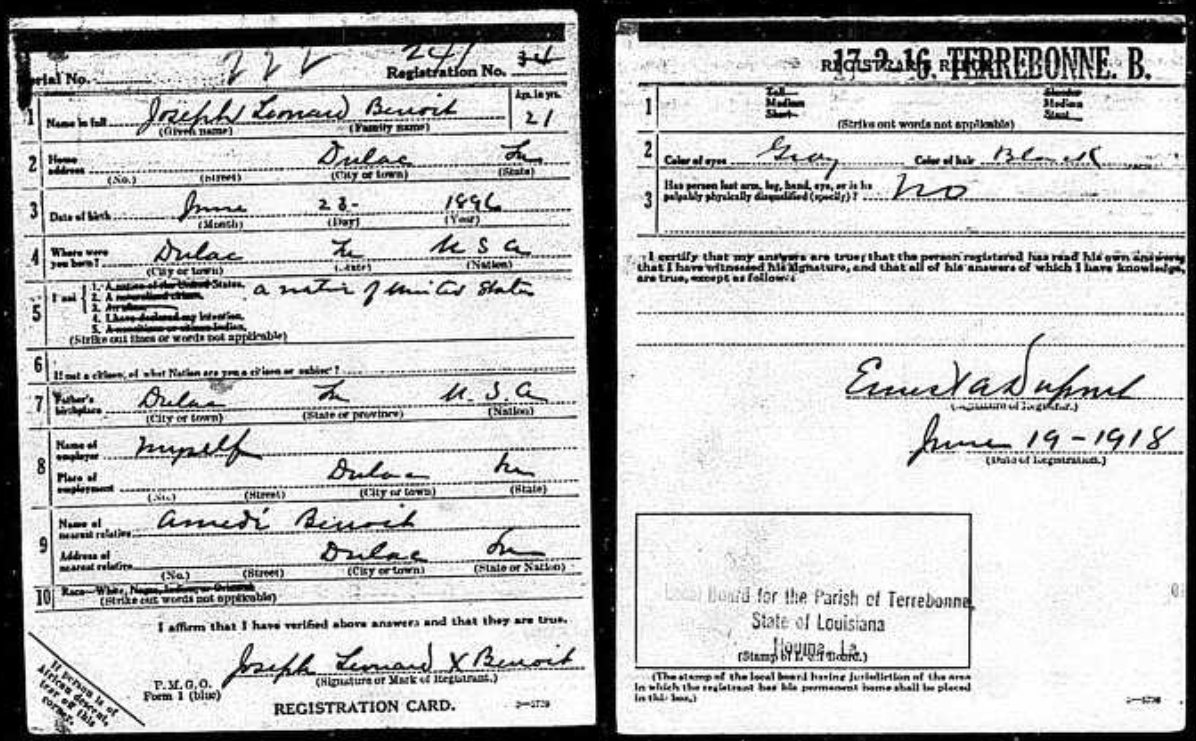 Serial No. 222 241 Registration No. 34
1 Name in full Joseph Leonard Benoit Age, in yrs. 21
(Given name) (Family name)
2 Home address Dulac La
(No.) (Street) (City or town) (State)
3 Date of birth June 23- 1896
(Month) (Day) (Year)
4 Where were you born? Dulac La U S A
(City or town) (State) (Nation)
5 I am 1. A native of the United States. a native of United States
2. A naturalized citizen.
3. An alien.
4. I have declared my intention.
5. A noncitizen or citizen Indian.
(Strike out lines or words not applicable)
6 If not a citizen, of what Nation are you a citizen or subject?
7 Father's birthplace Dulac La U. S. A
(City or town) (State or province) (Nation)
8 Name of employer myself
Place of employment Dulac La
(No.) (Street) (City or town) (State)
9 Name of nearest relative Amedi Benoit
Address of nearest relative Dulac La
(No.) (Street) (City or town) (State or Nation)
10 Race—White, Negro, Indian, or Oriental
(Strike out words not applicable)
I affirm that I have verified above answers and that they are true.
Joseph Leonard X Benoit
(Signature or Mark of Registrant.)
P. M. G. O.
Form 1 (blue)
REGISTRATION CARD.
If person is of
African descent,
tear off this
corner.
17-2-16. TERREBONNE. B.
REGISTRAR'S REPORT
1 Tall Slender
Medium Medium
Short Stout
(Strike out words not applicable)
2 Color of eyes Gray Color of hair Black
3 Has person lost arm, leg, hand, eye, or is he
palpably physically disqualified (specify)? No
I certify that my answers are true; that the person registered has read his own answers,
that I have witnessed his signature, and that all of his answers of which I have knowledge,
are true, except as follows:
Ernest A Dupont
(Signature of Registrar.)
June 19-1918
(Date of Registration.)
Local Board for the Parish of Terrebonne,
State of Louisiana
Houma, La.
(Stamp of Local Board.)
(The stamp of the local board having jurisdiction of the area
in which the registrant has his permanent home shall be placed
in this box.)